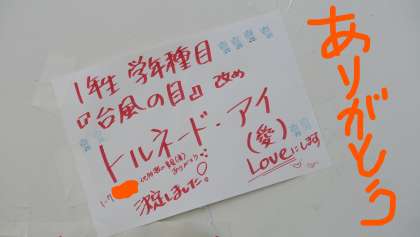 1年生 学年種目
『台風の目』改め
トルネード・アイ
(愛)
Loveにします
決定しました!
ありがとう